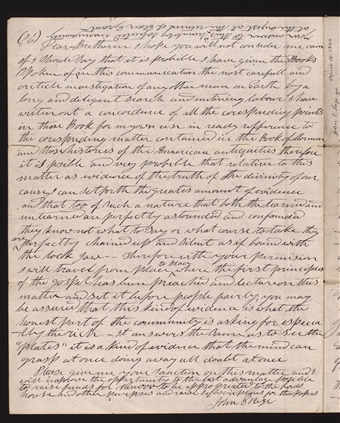 (2)
Dear Brethren I hope you will not consider me vain
if I should say that it is probable I have given the Books
Spoken of in this communication the most carefull and
critical investigation of any other man on Earth by a
long and diligent search and untiring labour I have
writen out a concordence of all the coresponding points
in those Book for my own use in ready refference to
the coresponding matter contained in the Book of Mormon
and those histories of the American antiquities therefore
it is posible and very probable that relative to this
matter as evidence of the truth of the divinity of our
cause I can set forth the greatest amount of evidence
and that too of such a nature that both the learned and
unlearned are perfectly astounded and confounded
they know not what to say or what course to take they
are perfectly chained up and silent as if bound with
the lock Jaw — Therefore with your permision
I will travel from place to place where the first principles
of the gospel has been preached and lecture on this
matter and set it before people fairly, you may
be assured that this kind of evidence is what the
honest part of the community is asking for especia
lly the rich — it answers the same as to see the
"Plates" it is a kind of evidence that the mind can
grasp at once doing away all doubt at once
Please give me your sanction on this matter and I
will improve the opportunity to the best advantage posible
to raise funds for to be appropriated to the Lords
house and other purposes and raise subscriptions for the papers
John E Page